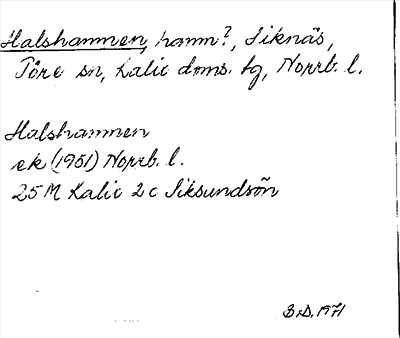 Halshamnen, hamn?, Siknäs,
Töre sn, Kalix doms. tg, Norrb. l.
Halshamnen
ek (1951) Norrb. l.
25 M Kalix 2 c Siksundsön
B.D. 1971